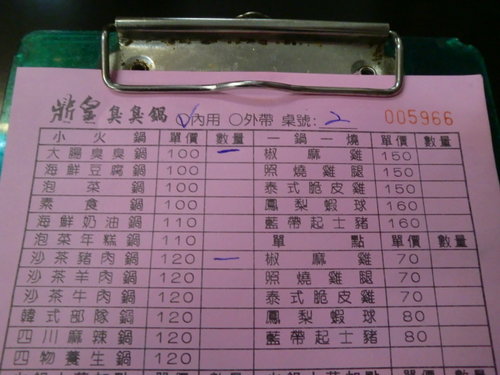 鼎皇臭臭鍋 內用 外帶 桌號: 2 005966
小火鍋 單價 數量 一鍋一燒 單價 數量
大腸臭臭鍋 100 一 椒麻雞 150
海鮮豆腐鍋 100 照燒雞腿 150
泡菜鍋 100 泰式脆皮雞 150
素食鍋 100 鳳梨蝦球 160
海鮮奶油鍋 110 藍帶起士豬 160
泡菜年糕鍋 110 單點 單價 數量
沙茶豬肉鍋 120 一 椒麻雞 70
沙茶羊肉鍋 120 照燒雞腿 70
沙茶牛肉鍋 120 泰式脆皮雞 70
韓式部隊鍋 120 鳳梨蝦球 80
四川麻辣鍋 120 藍帶起士豬 80
四物養生鍋 120
單價 數量 單價 數量